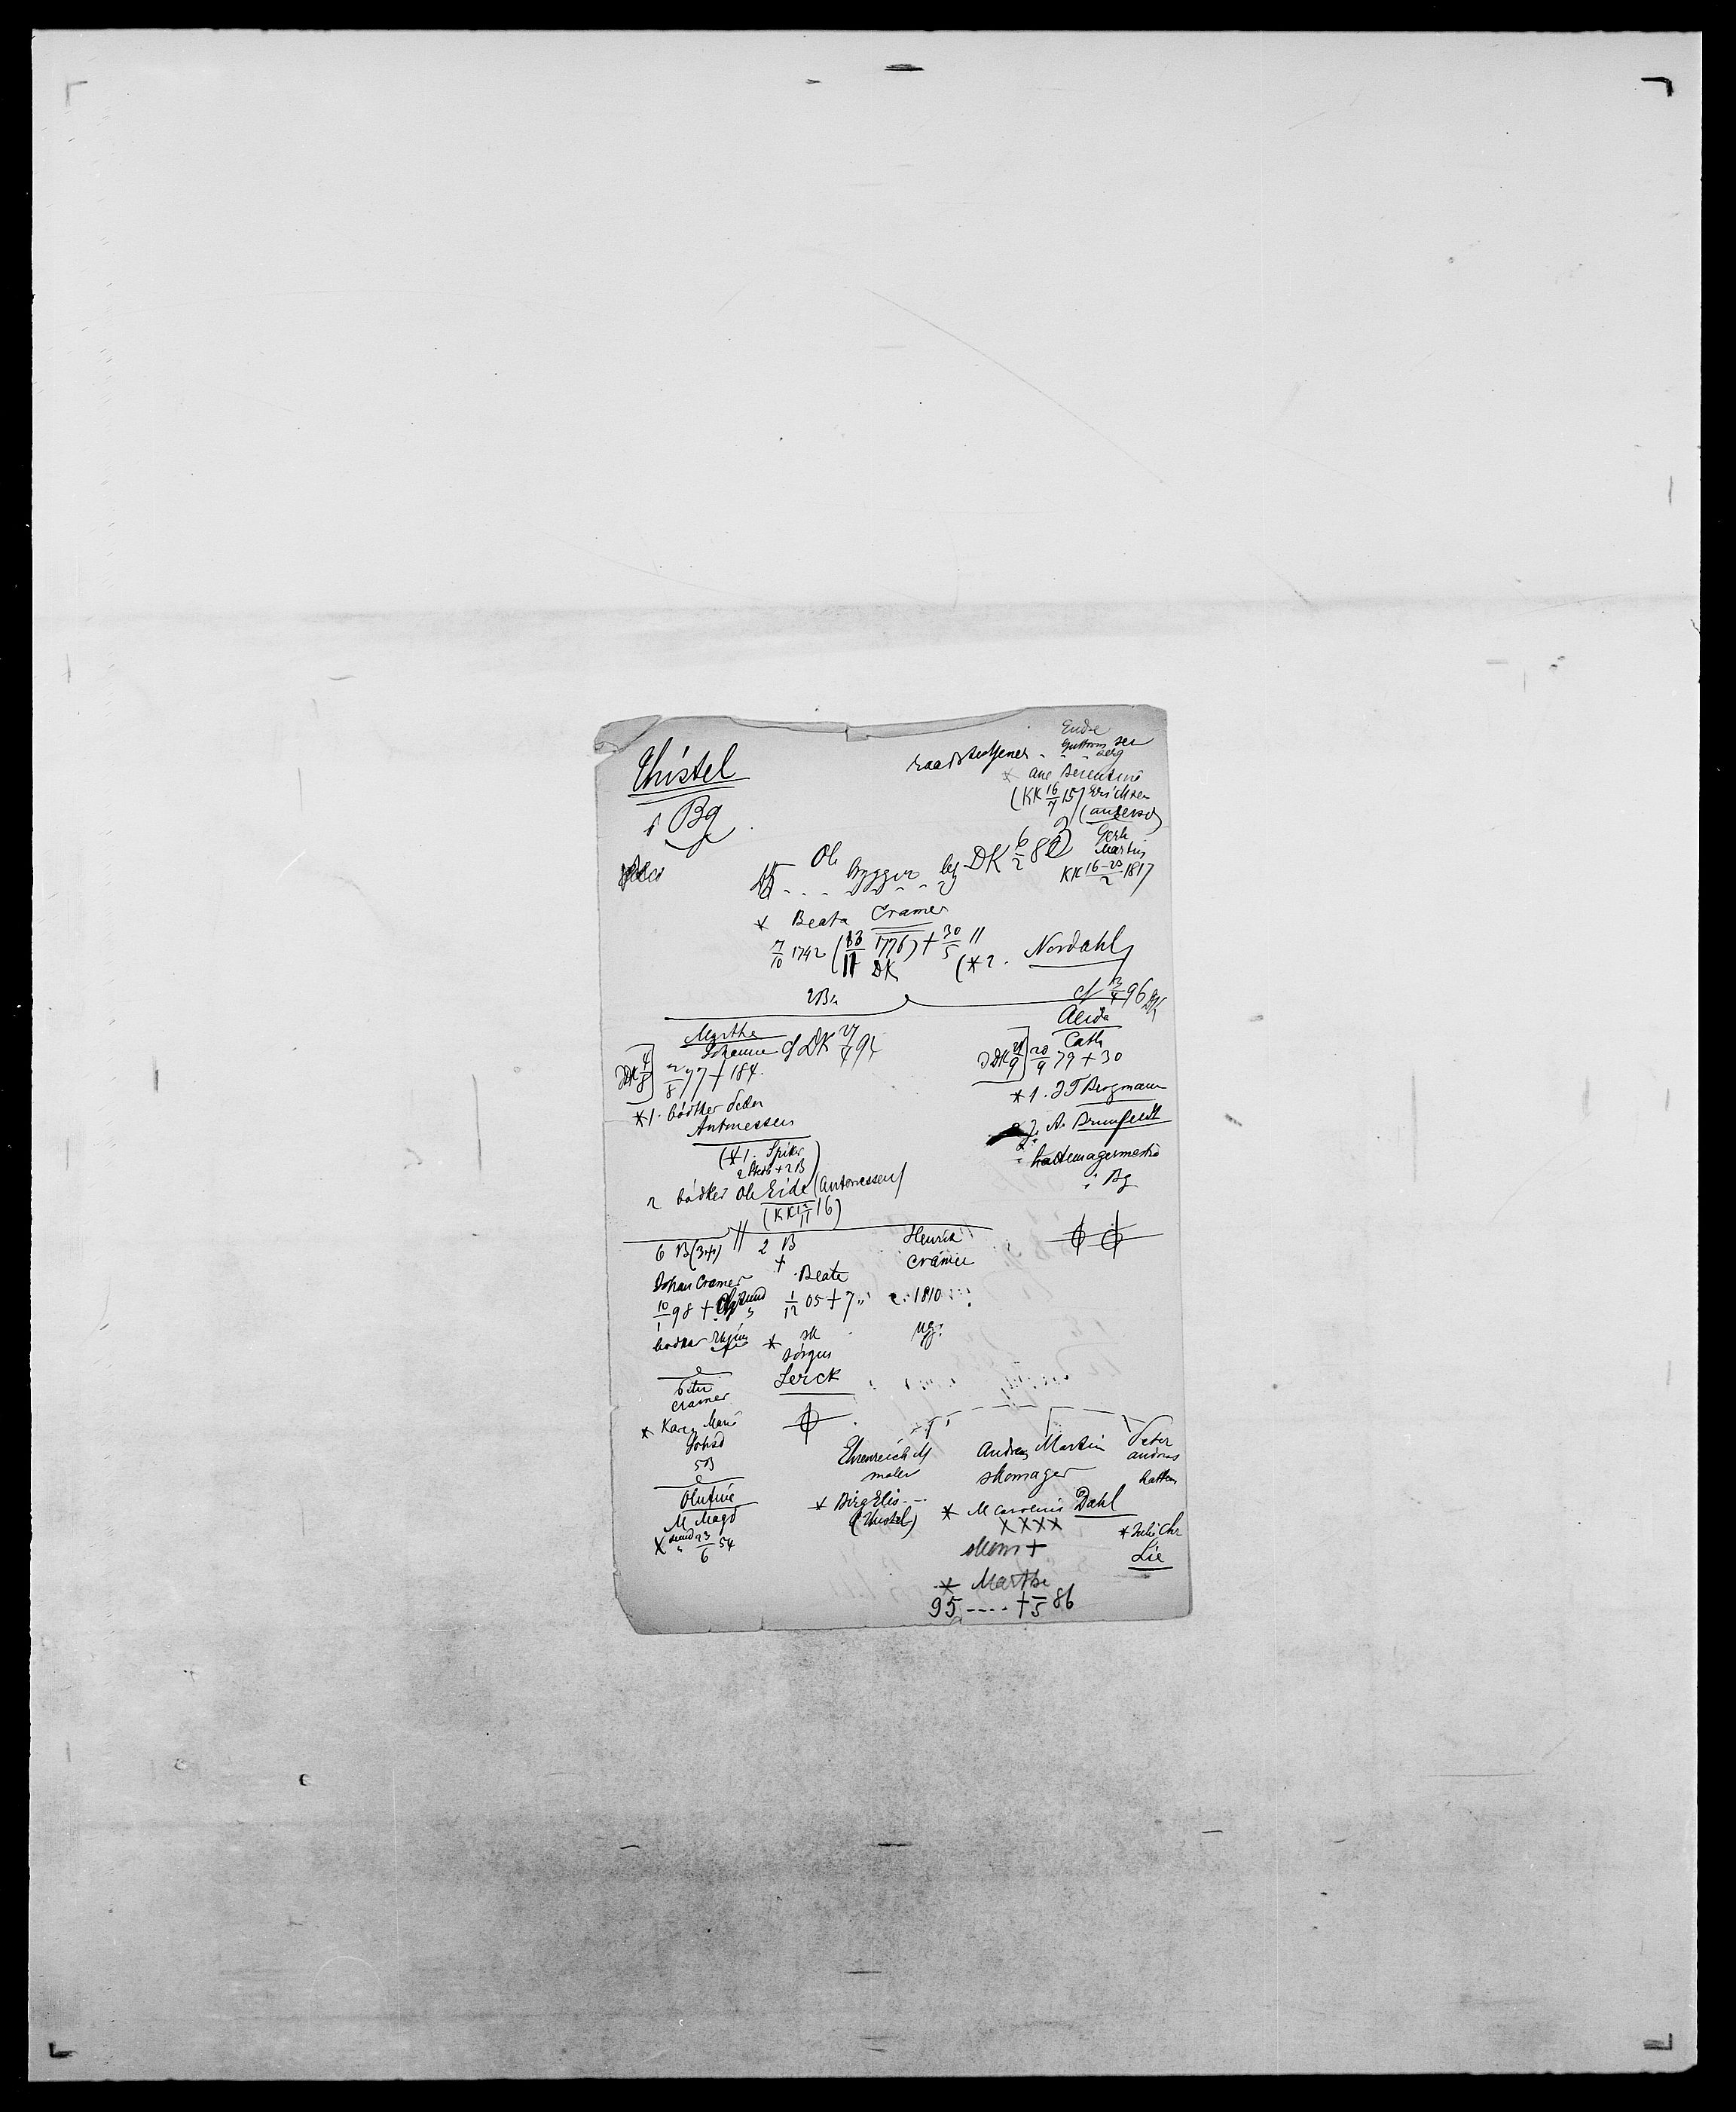 Christel
i Bg
Endre
raadstuetjener
* Ane Berentine
(KK 16/7 15) Erichsen
(andersd)
Gert
Martin
KK 16-20/2 1817
Ole
brygger bg DK 6/2 83
* Beata Cramer
7/10 1742 (13/11 1776) + 30/5 11
DK
(*2. Nordahl)
2 Bn
Marthe
Johanne
DK 4/8
2/8 77 + 184.
*1. bødker Peder
Antonessen
(*1. Spikr
2 B)
2 bødker Ole Eide (Antonessen)
(KK 12/11 16)
13/4 96 DK
Alida
Cath
DK 21/9 20/9 79 + 30
*1. J T Bergmann
2. A. Brunfeldt
hattemagermester
i Bg
6 B (3+) 2 B
+
Johan Cramer
10/1 98 +
bødker
Beate
1/12 05 + 7
* sk
Jørgen
Lerck
Henrik
Cramer
c. 1810
ug.
Peter
Cramer
* Karen Marie
Johsd
5 B
Olufine
M Magd
23/6 54
Ehrenreich M
maler
* Birg Elis
(Christel)
Andreas Martin
skomager
* M Caroline Dahl
XXXX
skom +
* Marthe
95 ---- + -/5 86
Peter
Andreas
hattem
* Julie Chr
Lie